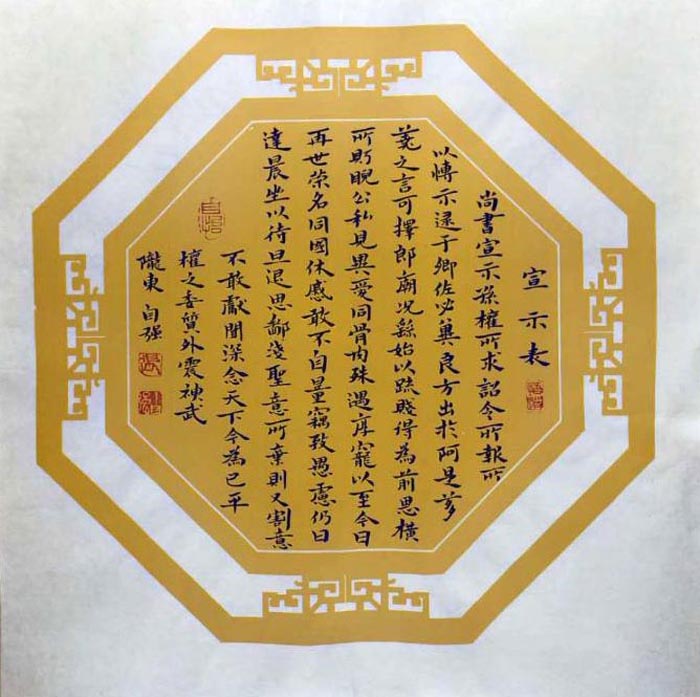 宣示表
尚書宣示孫權所求詔令所報所
以博示逮于卿佐必冀良方出於阿是芻
蕘之言可擇郎廟況繇始以疏賤得為前恩橫
所貯睨公私見異愛同骨肉殊遇厚寵以至今日
再世榮名同國休感敢不自量竊致愚慮仍日
達晨坐以待旦退思鄙淺聖意所棄則又割意
不敢獻聞深念天下今為已平
權之委質外震神武
隴東自强